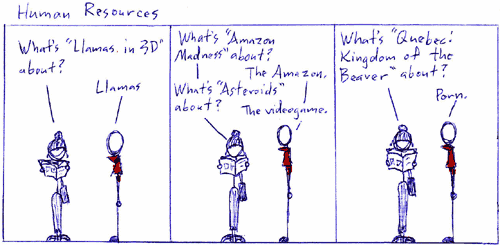 Human Resources
What's "Llamas in 3D"
about?
Llamas
What's "Amazon
Madness" about?
The Amazon.
What's "Asteroids"
about?
The videogame.
What's "Quebec:
Kingdom of the
Beaver" about?
Porn.